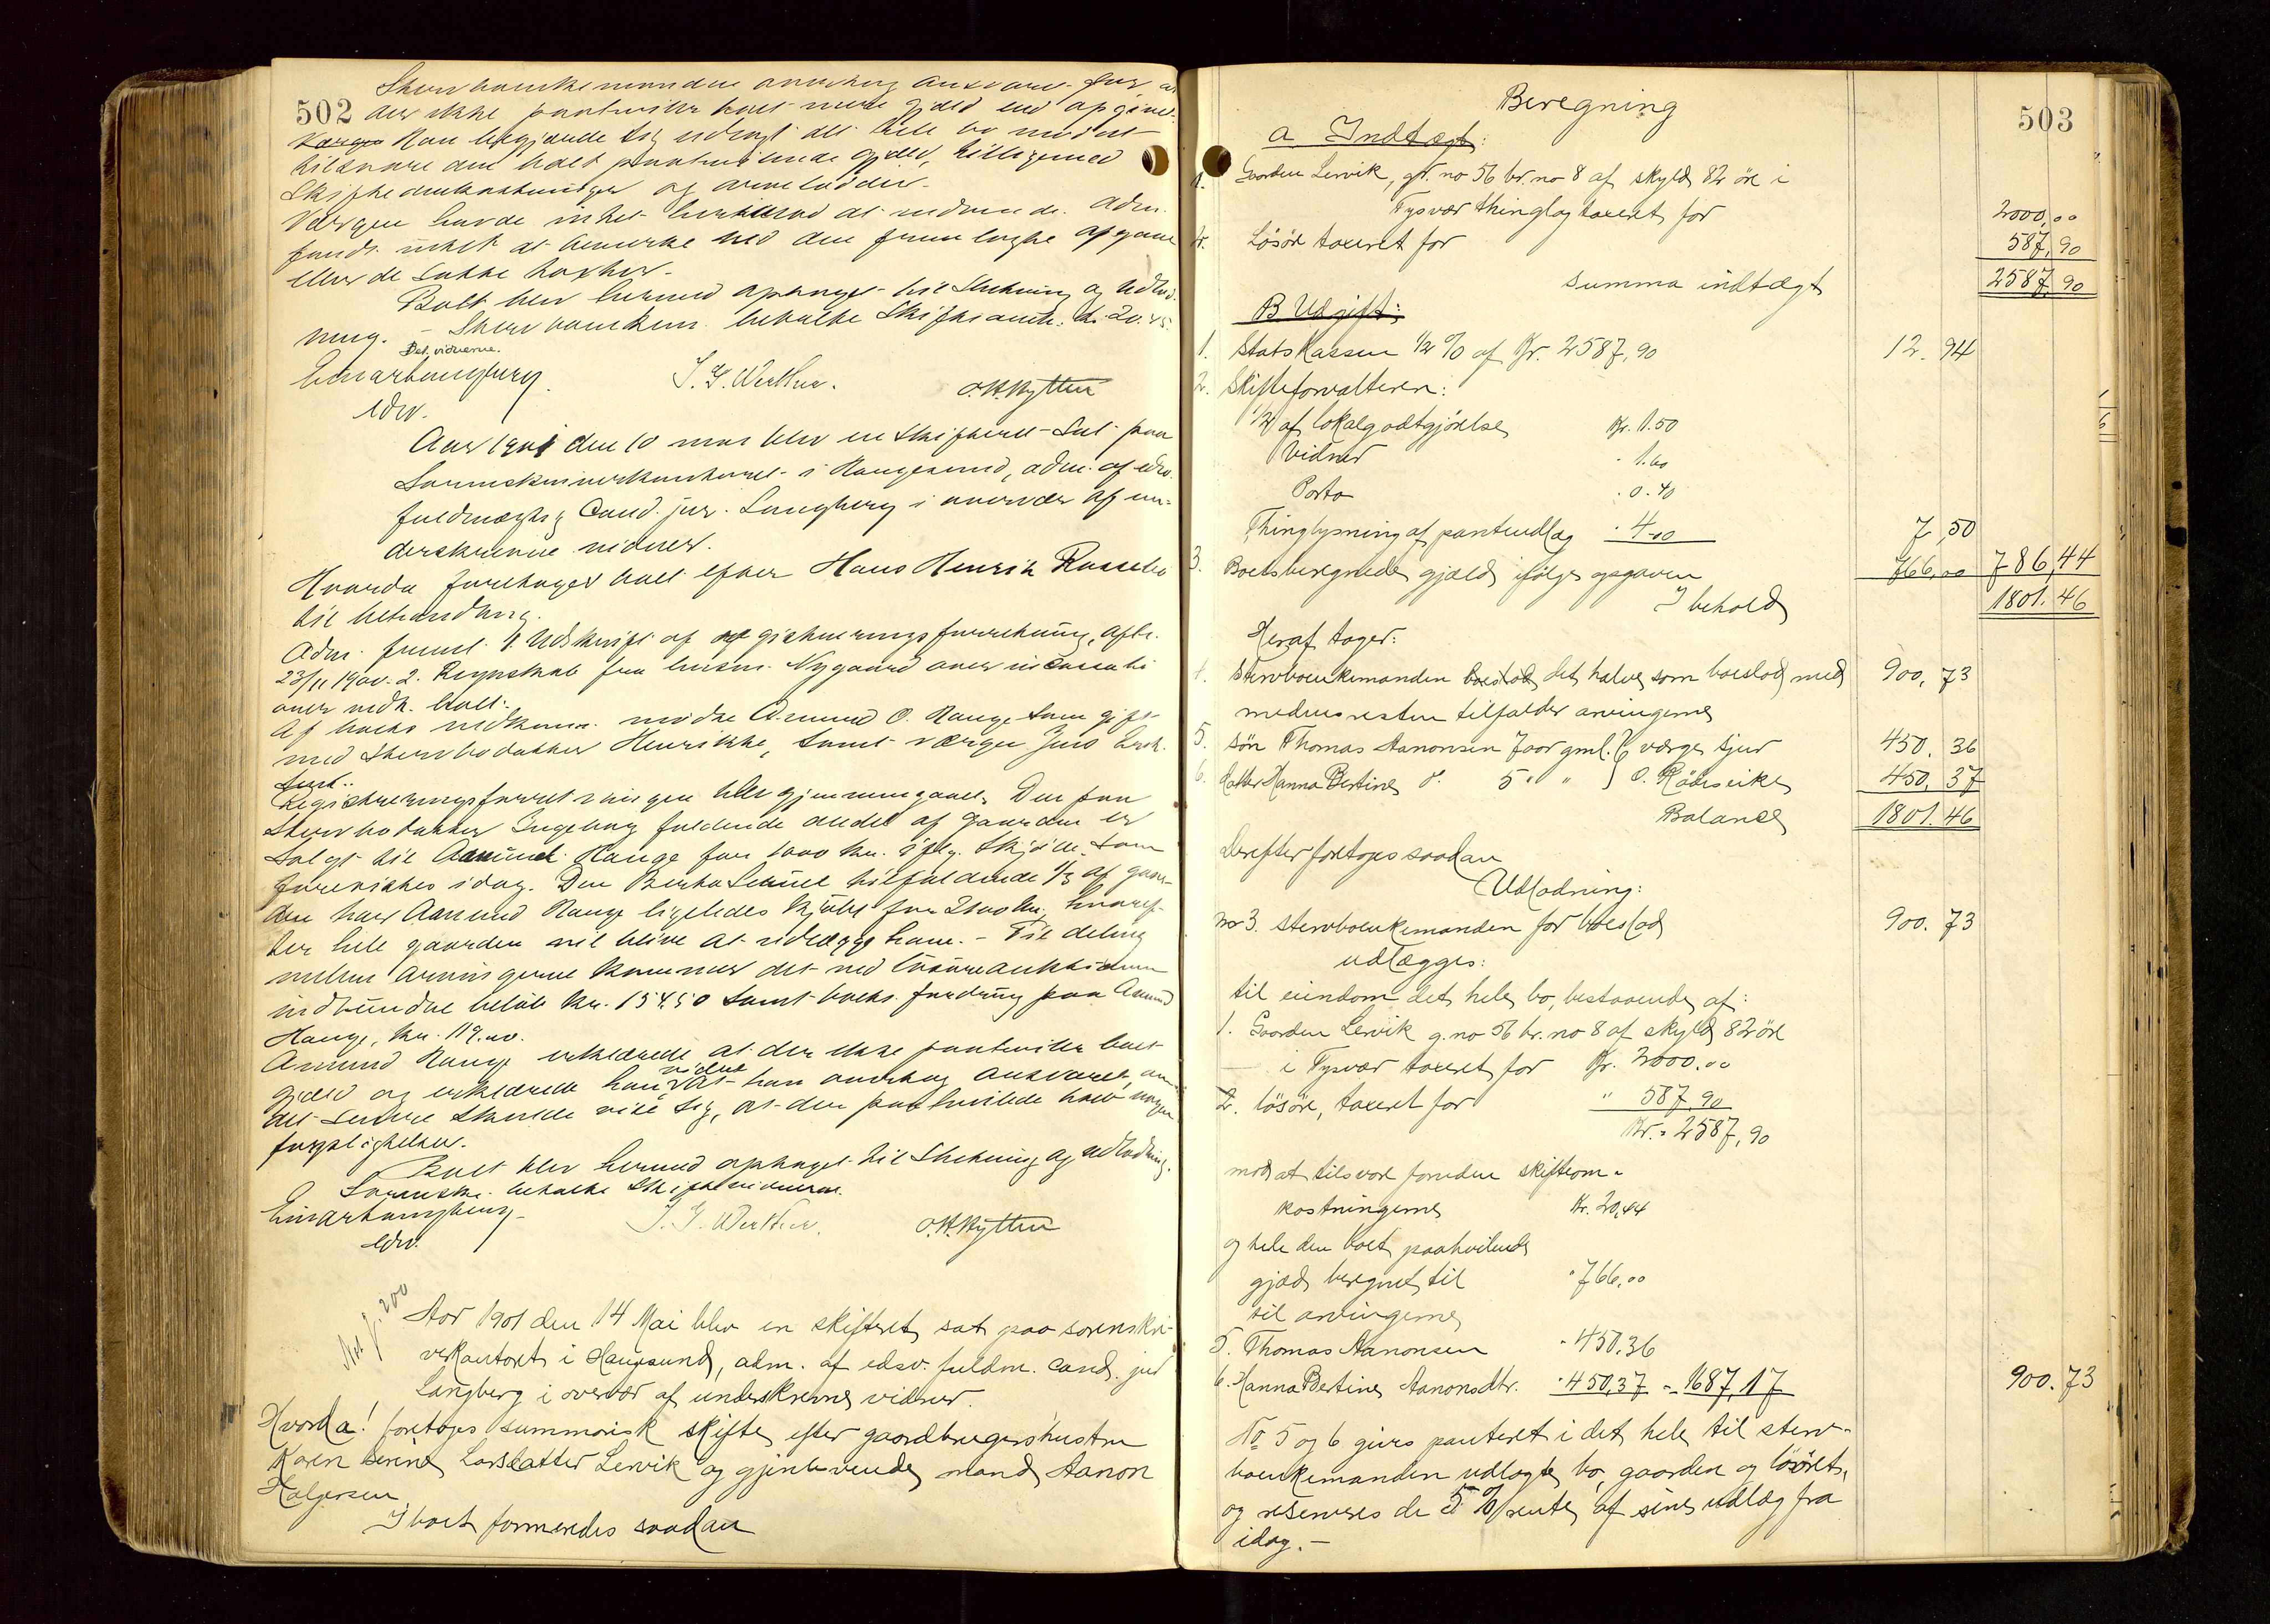 502
der ikke paahviler boet mere gjeld end opgivet
Han begjærde sig udlagt det hele bo imod at
tilsvare den boet paahvilende gjeld, tilligemed
Skifteomkostninger og arvelodder.
Værgen havde intet herimod at indvende. Adm.
fandt intet at bemærke ved den fremlagte opgave
eller de satte taxter.
Boet blev hermed optaget til Slutning og Udlod-
ning. – betalte Skifteomk. kr. 20.45.
Bet. vidnerne.
Einar Langberg
J. G. Werther.
O. H. Hytten
edsv.
Aar 1901 den 10 mai blev en skifteret sat paa
Sorenskriverkontoret i Haugesund, adm. af edsv.
fuldmægtig Cand. jur. Langberg i overvær af un-
derskrevne vidner.
Hvorda foretoges boet efter Hans Henrik
til behandling.
Adm. freml. 1. Udskrift af registreringsforretning, afh.
23/11 1900. 2. Regnskab fra lensm. Nygaard over incassati
over vedk. boet.
Af boets vedkomm. mødte Amund O. Hauge som gift
med Stervbodatter Henrikke, samt værgen Jens
Registreringsforretningen blev gjennemgaaet. Den paa
Stervbodatter Ingeborg faldende andel af gaarden er
solgt til Aamund Hauge for 1000 kr. iflg. Skjøde som
forevistes idag. Den tilfaldende 1/3 af gaar-
den har Aamund Hauge ligeledes kjøbt for kr., hvoref-
ter hele gaarden vil blive at udlægge ham. – Til deling
mellem arvingerne kommer det ved løsøreauktionen
indvundne beløb kr. 154.50 samt boets fordring paa Amund
Hauge, kr. 119.00.
Amund Hauge erklærede at der ikke paahviler boet
gjeld og erklærede han videre at han overtog ansvaret, om
det senere skulde vise sig, at der paahvilede boet nogen
forpligtelser.
Boet blev hermed optaget til Slutning og udlodning.
Sorenskr. betalte Skiftevidnerne.
Einar Langberg
J. G. Werther.
O. H. Hytten
edsv.
Aar 1901 den 14 Mai blev en skifteret sat paa sorenskri-
verkontoret i Haugesund, adm. af edsv. fuldm. cand. jur
Langberg i overvær af underskrevne vidner.
Hvorda! foretoges summarisk skifte efter gaardbrugershustru
Karen Serine Larsdatter Lervik og gjenlevende mand Aanon
Holgersen
I boet formeredes saadan
503
Beregning
a Indtægt:
1. Gaarden Lervik, gr. no 56 br. no 8 af skyld 82 øre i
Tysvær thinglag taxeret for 2000,00
2. Løsøre taxeret for 587,90
Summa indtægt 2587,90
B. Udgift:
1. Statskassen 1/2 % af Kr. 2587,90 12.94
2. Skifteforvalteren:
1/2 af lokalgodtgjørelse Kr. 1.50
Vidner " 1.60
Porto " 0.40
Thinglysning af panteudlæg " 4.00 7,50
3. Boets beregnede gjæld ifølge opgaven 766,00 786,44
I behold 1801.46
Heraf tager:
4. Stervboenkemanden boeslod det halve som boeslod med 900,73
medens resten tilfalder arvingerne
5. søn Thomas Aanonsen 7 aar gml. } værge Sjur 450.36
6. datter Hanna Bertine d. 5 " " } O. Rødseike 450,37
Balance 1801.46
Derefter foretoges saadan
Udlodning:
no 3. stervboenkemanden for boeslod 900.73
udlægges:
til eiendom det hele bo, bestaaende af:
1. Gaarden Lervik g. no 56 br. no 8 af skyld 82 øre
i Tysvær taxeret for Kr. 2000.00
2. løsøre, taxeret for " 587,90
Kr. 2587,90
mod at tilsvare foruden skifteom-
kostningerne Kr. 20,44
og hele den boet paahvilende
gjæld beregnet til " 766,00
til arvingerne
5. Thomas Aanonsen " 450.36
6. Hanna Bertine Aanonsdtr. " 450,37 = 1687,17 900.73
No 5 og 6 gives panteret i det hele til sterv-
boenkemanden udlagte bo, gaarden og løsøret,
og reserveres de 5 % rente af sine udlæg fra
idag. –